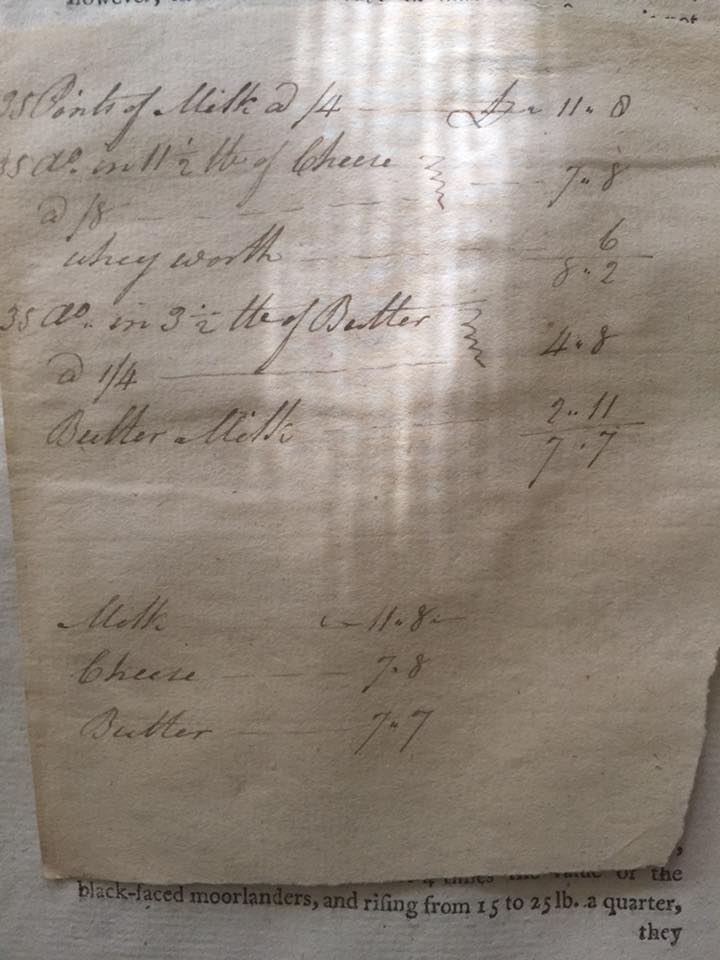 However,
not
35 Pints of Milk @ /4 — £ " 11 " 8
35 do. in 11 1/2 lb of Cheese
@ /8 — — — 7 " 8
whey worth — — 6
8 " 2
35 do. in 3 1/2 lb of Butter
@ 1/4 — 4 " 8
Butter Milk — — 2 " 11
7 " 7
Milk — 11 " 8 —
Cheese — — 7 " 8
Butter — — 7 " 7
times the value of the
black-faced moorlanders, and rising from 15 to 25 lb. a quarter,
they